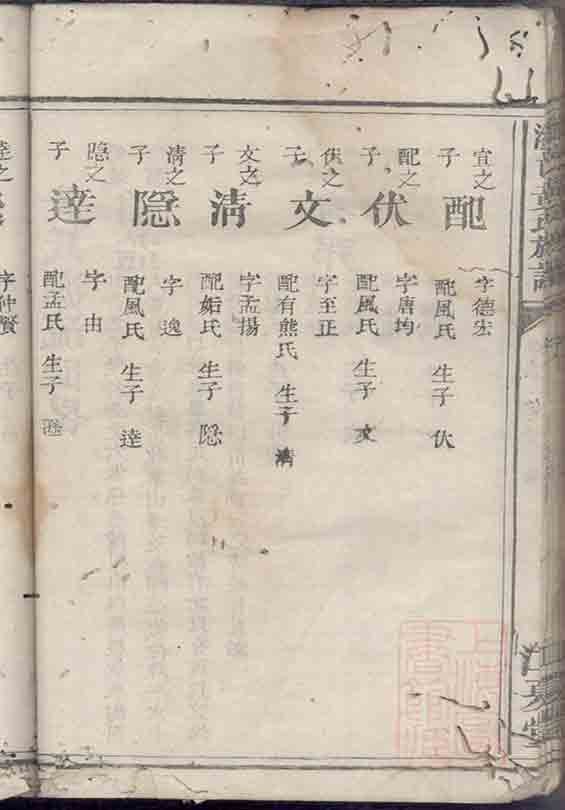 宜之子
配
字德宏
配風氏 生子 伏
配之子
伏
字唐均
配風氏 生子 文
伏之子
文
字至正
配有熊氏 生子 清
文之子
清
字孟揚
配姤氏 生子 隐
清之子
隐
字逸
配風氏 生子 達
隐之子
達
字由
配孟氏 生子
達之
字仲賢
黃氏族譜
江夏堂